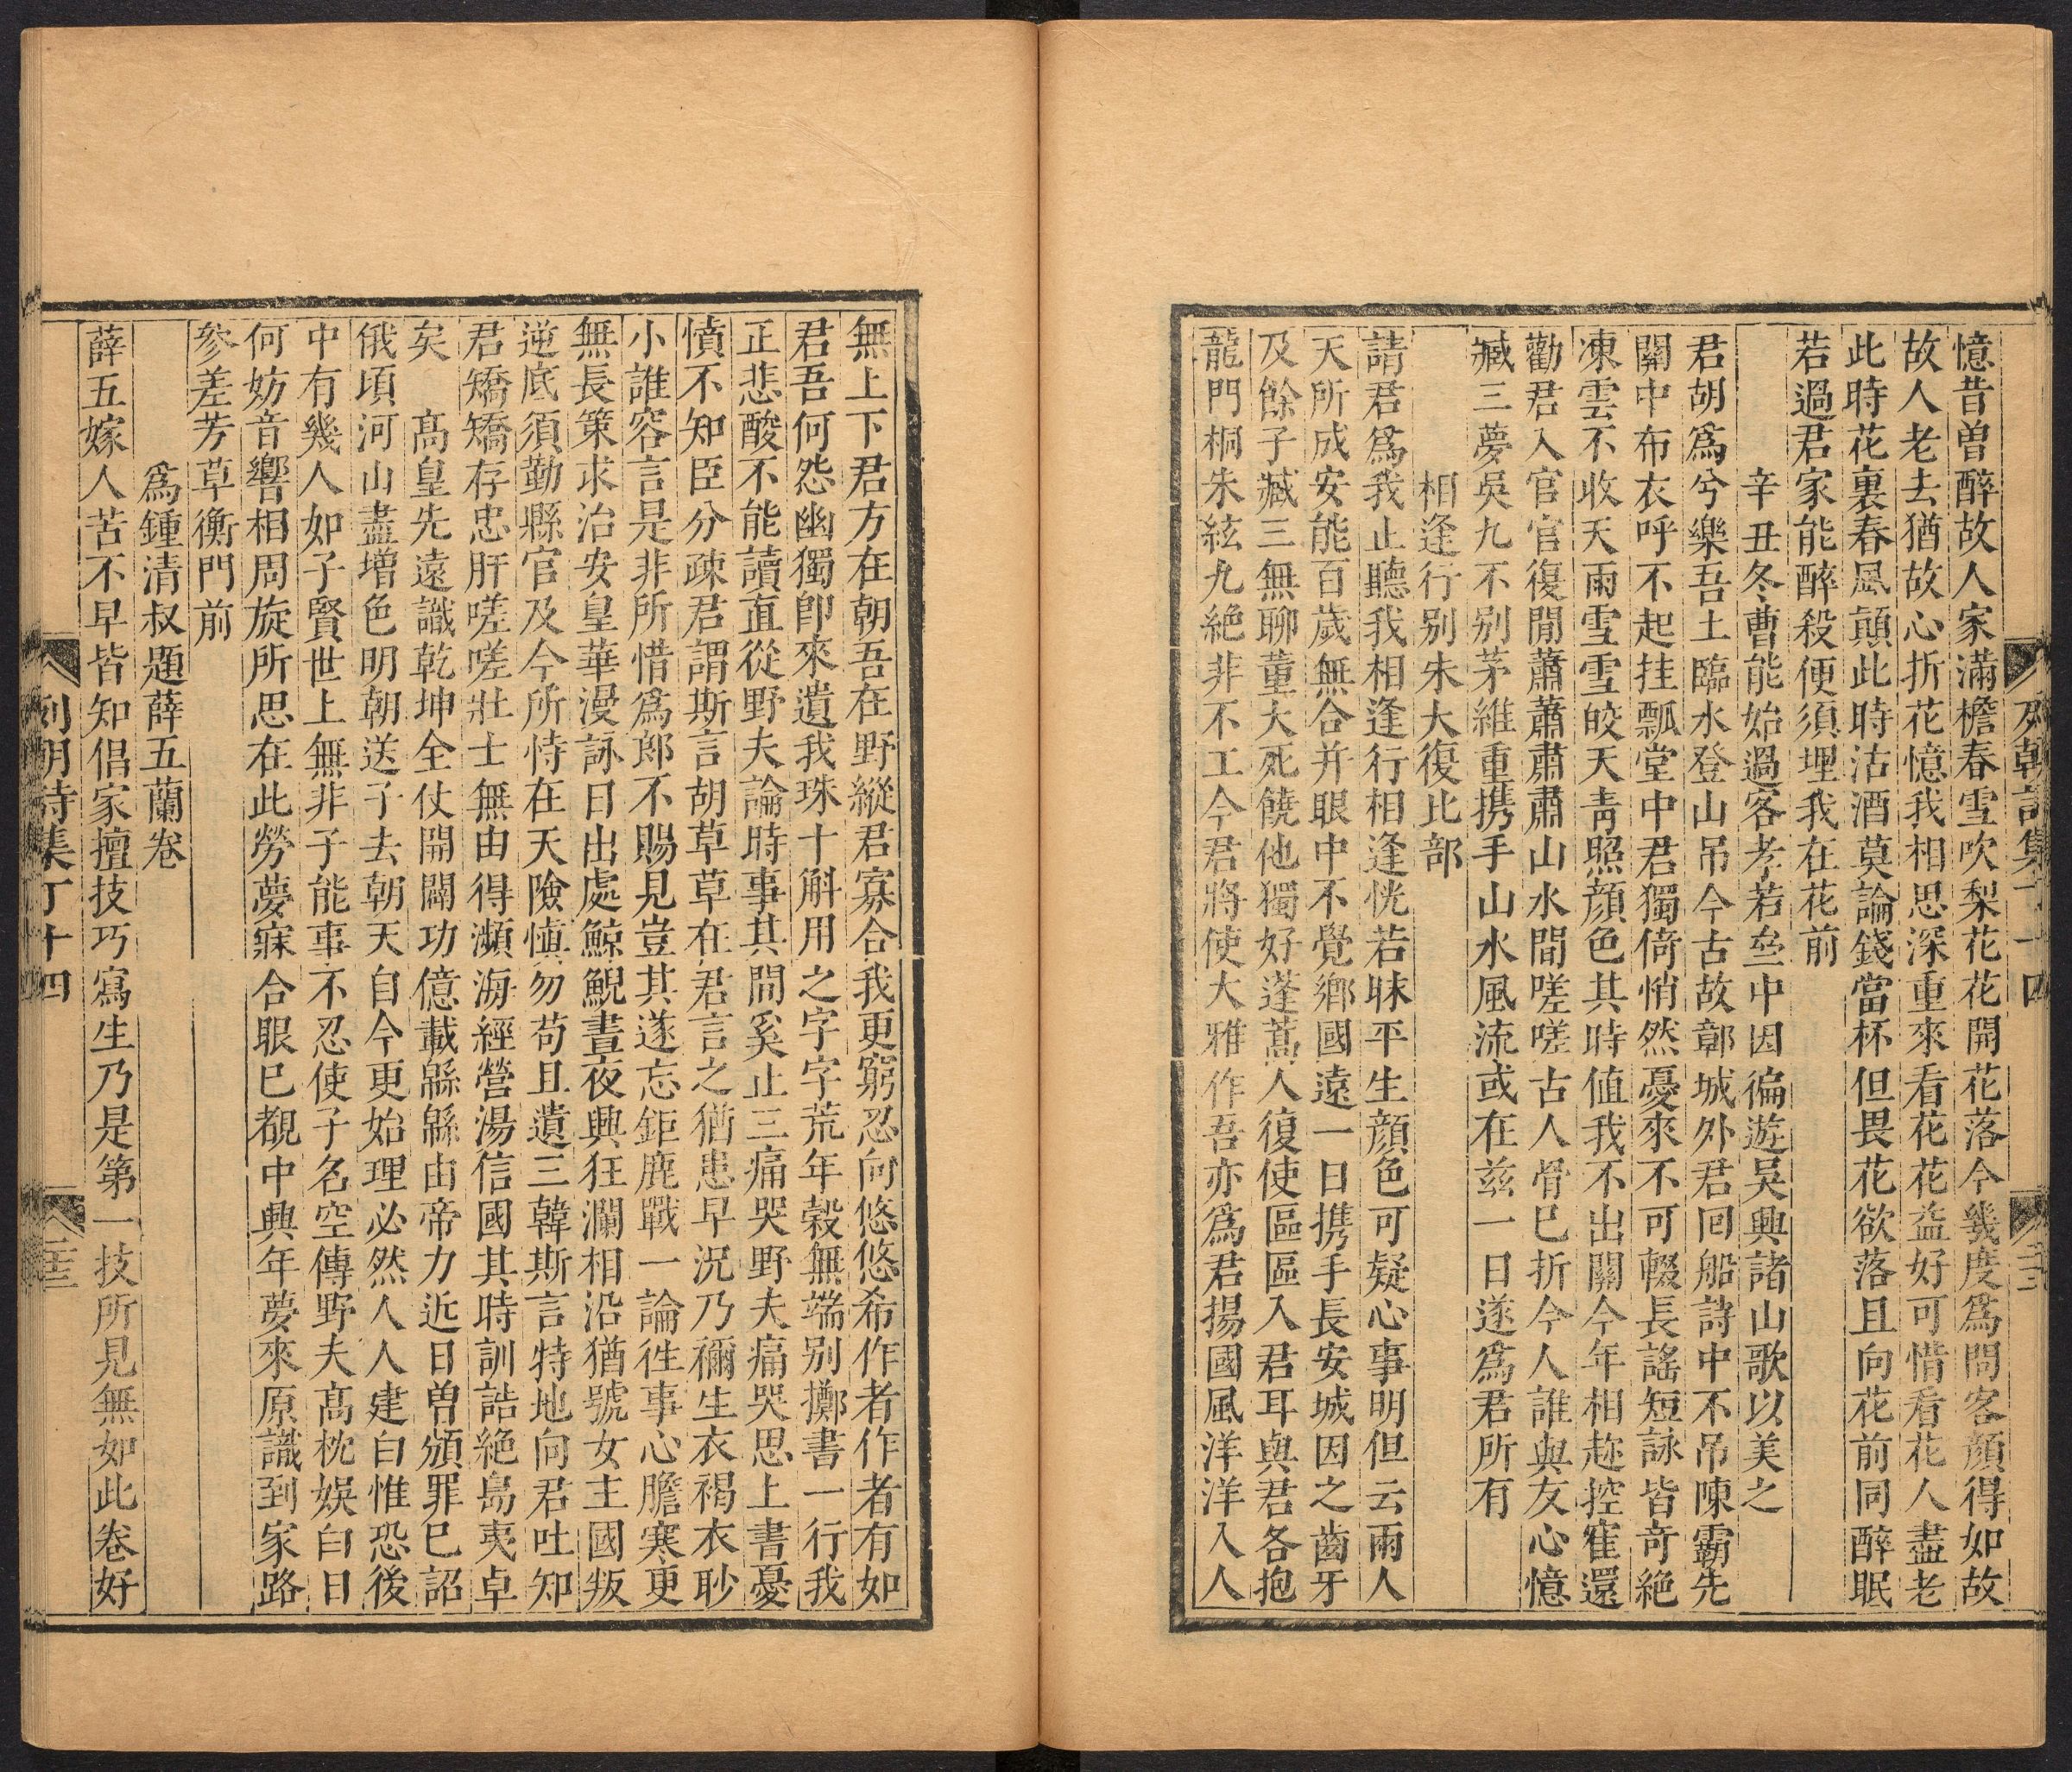 列朝詩集丁十四
憶昔曾醉故人家滿檐春雪吹梨花花開花落今幾度爲問客顔得如故
故人老去猶故心折花憶我相思深重來看花花益好可惜看花人盡老
此時花裏春風顛此時沽酒莫論錢當杯但畏花欲落且向花前同醉眠
若過君家能醉殺便須埋我在花前
辛丑冬曹能始過客孝若壘中因徧遊吳興諸山歌以美之
君胡爲兮樂吾土臨水登山吊今古故鄣城外君囘船詩中不吊陳霸先
關中布衣呼不起挂瓢堂中君獨倚悄然憂來不可輟長謠短詠皆奇絶
凍雲不收天雨雪雪皎天靑照顔色其時值我不出關今年相趂控寉還
勸君入官官復閒蕭蕭肅肅山水間嗟嗟古人骨巳折今人誰與友心憶
臧三夢吳九不别茅維重携手山水風流或在兹一日遂爲君所有
相逢行别朱大復比部
請君爲我止聽我相逢行相逢恍若昧平生顔色可疑心事明但云雨人
天所成安能百歲無合并眼中不覺鄉國遠一日携手長安城因之齒牙
及餘子臧三無聊董大死饒他獨好蓬蒿人復使區區入君耳與君各抱
龍門桐朱絃九絶非不工今君將使大雅作吾亦爲君揚國風洋洋入人
無上下君方在朝吾在野縱君寡合我更窮忍向悠悠希作者作者有如
君吾何怨幽獨卽來遺我珠十斛用之字字荒年穀無端别擲書一行我
正悲酸不能讀直從野夫論時事其間奚止三痛哭野夫痛哭思上書憂
憤不知臣分疎君謂斯言胡草草在君言之猶患早況乃禰生衣褐衣眇
小誰容言是非所惜爲郎不賜見豈其遂忘鉅鹿戰一論徃事心膽寒更
無長策求治安皇華漫詠日出處鯨鯢晝夜興狂瀾相沿猶號女主國叛
逆底須勤縣官及今所恃在天險愼勿苟且遺三韓斯言特地向君吐知
君矯矯存忠肝嗟嗟壯士無由得瀕海經營湯信國其時訓誥絶島夷卓
矣　髙皇先遠識乾坤全仗開闢功億載緜緜由帝力近日曽頒罪巳詔
俄頃河山盡增色明朝送子去朝天自今更始理必然人人建白惟恐後
中有幾人如子賢世上無非子能事不忍使子名空傳野夫髙枕娱白日
何妨音響相周旋所思在此勞夢寐合眼巳覩中興年夢來原識到家路
參差芳草衡門前
爲鍾清叔題薛五蘭卷
薛五嫁人苦不早皆知倡家擅技巧寫生乃是第一技所見無如此卷好
列朝詩集丁十四